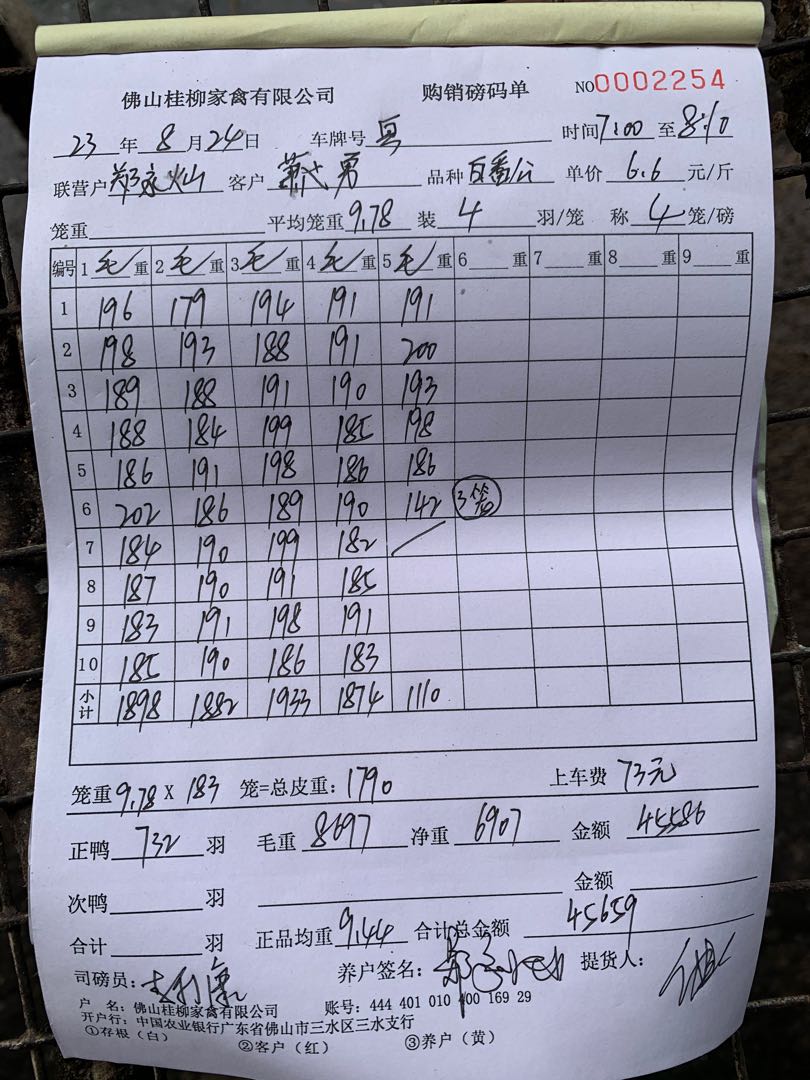 佛山桂柳家禽有限公司 购销磅码单 NO0002254
23 年 8 月 24 日 车牌号 粤 时间 7:00 至 8:10
联营户 郑永灿 客户 萧武勇 品种 白番公 单价 6.6 元/斤
笼重 平均笼重 9.78 装 4 羽/笼 称 4 笼/磅
编号 1 毛 重 2 毛 重 3 毛 重 4 毛 重 5 毛 重 6 重 7 重 8 重 9 重
1 196 179 194 191 191
2 198 193 188 191 200
3 189 188 191 190 193
4 188 184 199 185 198
5 186 191 198 186 186
6 202 186 189 190 142 3笼
7 184 190 199 182
8 187 190 191 185
9 183 191 198 191
10 185 190 186 183
小计 1898 1882 1933 1874 1110
笼重 9.78 X 183 笼=总皮重: 1790 上车费 73元
正鸭 732 羽 毛重 8697 净重 6907 金额 45586
次鸭 羽 金额
合计 羽 正品均重 9.44 合计总金额 45659
司磅员: 养户签名: 提货人:
户 名: 佛山桂柳家禽有限公司 账号: 444 401 010 400 169 29
开户行: 中国农业银行广东省佛山市三水区三水支行
①存根(白) ②客户(红) ③养户(黄)